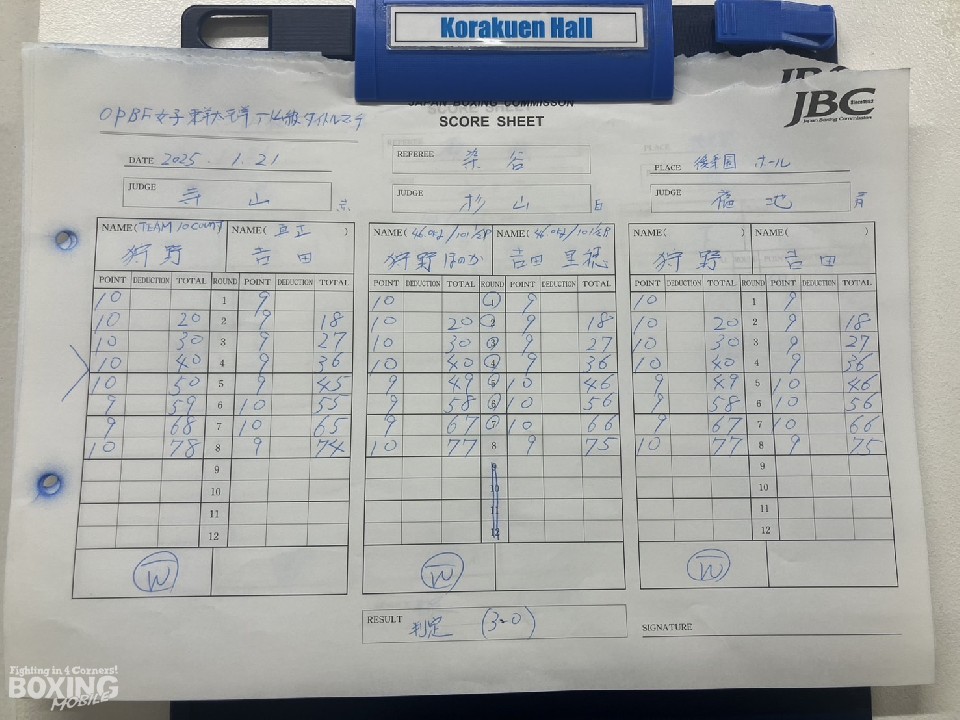 Korakuen Hall
JAPAN BOXING COMMISSON
SCORE SHEET
JBC
Japan Boxing Commission
OPBF女子東洋太平洋 タイトルマッチ
DATE 2025. 1. 21
REFEREE 染谷
PLACE 後楽園 ホール
JUDGE 寺山
JUDGE 杉山
JUDGE 福地
NAME(TEAM 10COUNT) NAME(真正)
狩野 吉田
NAME( NAME(
狩野ほのか 吉田里穂
NAME( ) NAME( )
狩野 吉田
POINT DEDUCTION TOTAL ROUND POINT DEDUCTION TOTAL
10 1 9
10 20 2 9 18
10 30 3 9 27
10 40 4 9 36
10 50 5 9 45
9 59 6 10 55
9 68 7 10 65
10 78 8 9 74
9
10
11
12
W
POINT DEDUCTION TOTAL ROUND POINT DEDUCTION TOTAL
10 1 9
10 20 2 9 18
10 30 3 9 27
10 40 4 9 36
9 49 5 10 46
9 58 6 10 56
9 67 7 10 66
10 77 8 9 75
9
10
11
12
W
POINT DEDUCTION TOTAL ROUND POINT DEDUCTION TOTAL
10 1 9
10 20 2 9 18
10 30 3 9 27
10 40 4 9 36
9 49 5 10 46
9 58 6 10 56
9 67 7 10 66
10 77 8 9 75
9
10
11
12
W
RESULT 判定 (3-0)
SIGNATURE
Fighting in 4 Corners!
BOXING
MOBILE